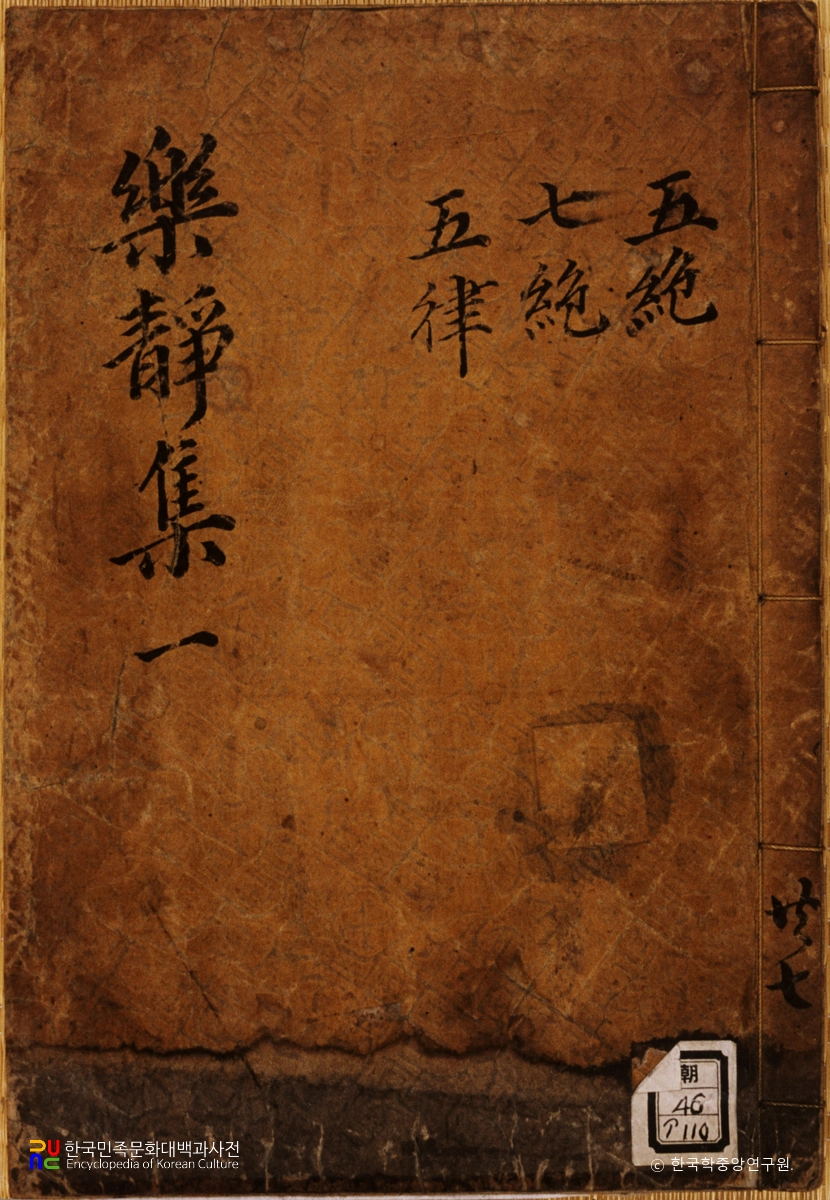 五絶
七絶
五律
樂靜集 一
共七
朝
46
110
한국민족문화대백과사전
Encyclopedia of Korean Culture
© 한국학중앙연구원